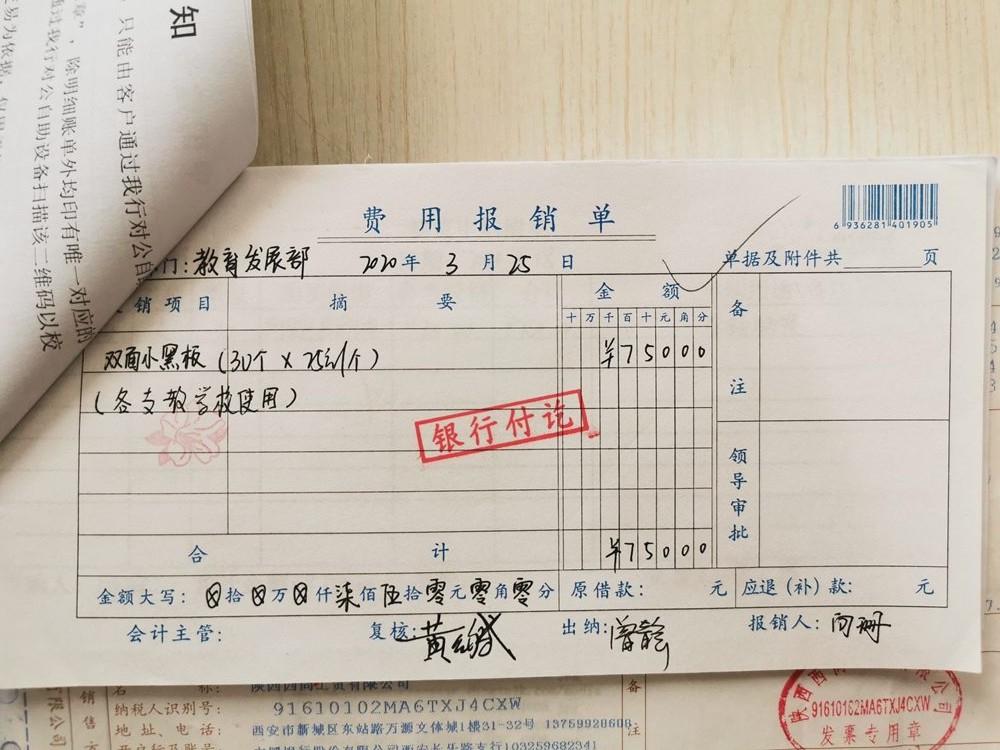 知
只能由客户通过我行对公自
章”，除明细账单外均印有唯一对应的
通过我行对公自助设备扫描该二维码以校
易为依据
费用报销单
6 936281 401905
门：教育发展部 2020年3月25日 单据及附件共 页
销项目 摘要 金额 备注
十万千百十元角分
双面小黑板（30个×25元/个） ¥75000
（各支教学校使用）
银行付讫
领导审批
合计 ¥75000
金额大写：⊗拾⊗万⊗仟柒佰伍拾零元零角零分 原借款： 元 应退（补）款： 元
会计主管： 复核： 出纳： 报销人：
名称：
纳税人识别号： 91610102MA6TXJ4CXW
地址、电话： 西安市新城区东站路万源文体城1楼31-32号
备注
销售方
有限公司
91610102MA6TXJ4CXW
发票专用章